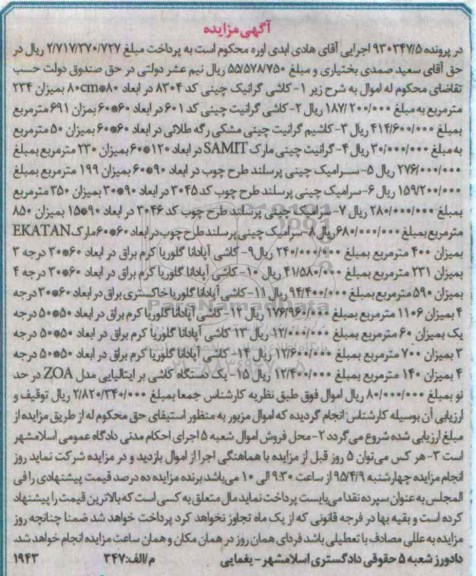 آگهی مزایده
در پرونده 930347/5 اجرایی آقای هادی ابدی اوره محکوم است به پرداخت مبلغ 2/717/370/727 ریال در
حق آقای سعید صمدی بختیاری و مبلغ 55/578/750 ریال نیم عشر دولتی در حق صندوق دولت حسب
تقاضای محکوم له اموال به شرح زیر 1- کاشی گرانیک چینی کد 8304 در ابعاد 80*80cm بمیزان 234
مترمربع به مبلغ 187/200/000 ریال 2- کاشی گرانیت چینی کد 601 در ابعاد 60*60 بمزان 691 مترمربع
بمبلغ 414/600/000 ریال 3- کاشیم گرانیت چینی مشکی رگه طلائی در ابعاد 60*60 بمیزان 50 مترمربع
به مبلغ 30/000/000 ریال 4- گرانیت چینی مارک SAMIT در ابعاد 120*60 بمیزان 230 مترمربع بمبلغ
276/000/000 ریال 5- سرامیک چینی پرسلند طرح چوب در ابعاد 90*60 بمیزان 199 مترمربع بمبلغ
159/200/000 ریال 6- سرامیک چینی پرسلند طرح چوب کد 3045 در ابعاد 90*30 بمیزان 350 مترمربع
بمبلغ 280/000/000 ریال 7- سرامیک چینی پرسلند طرح چوب کد 3046 در ابعاد 90*15 بمیزان 850
مترمربع بمبلغ 680/000/000 ریال 8- سرامیک چینی پرسلند طرح چوب در ابعاد 60*60 مارک EKATAN
بمیزان 400 مترمربع بمبلغ 240/000/000 ریال 9- کاشی آپادانا گلوریا کرم براق در ابعاد 60*30 درجه 3
بمیزان 231 مترمربع بمبلغ 41/580/000 ریال 10- کاشی آپادانا گلوریا کرم براق در ابعاد 60*30 درجه 4
بمیزان 590 مترمربع بمبلغ 94/400/000 ریال 11- کاشی آپادانا گلوریا خاکستری براق در ابعاد 60*30 درجه
4 بمیزان 1106 مترمربع بمبلغ 176/960/000 ریال 12- کاشی آپادانا گلوریا کرم براق در ابعاد 50*50 درجه
یک بمیزان 60 مترمربع بمبلغ 12/000/000 ریال 13 کاشی آپادانا گلوریا کرم براق در ابعاد 50*50 درجه
3 بمیزان 700 مترمربع بمبلغ 12/600/000 ریال 14- کاشی آپادانا گلوریا کرم براق در ابعاد 50*50 درجه
4 بمیزان 140 مترمربع بمبلغ 12/400/000 ریال 15- یک دستگاه کاشی بر ایتالیایی مدل ZOA در حد
نو بمبلغ 80/000/000 ریال اموال فوق طبق نظریه کارشناس جمعا بمبلغ 2/820/340/000 ریال توقیف و
ارزیابی آن بوسیله کارشناس انجام گردیده که اموال مزبور به منظور استیفای حق محکوم له از طریق مزایده از
مبلغ ارزیابی شده شروع می گردد 2- محل فروش اموال شعبه 5 اجرای احکام مدنی دادگاه عمومی اسلامشهر
است 3- هر کس می توان 5 روز قبل از مزایده با هماهنگی اجرا از اموال بازدید و در مزایده شرکت نماید روز
انجام مزایده چهارشنبه 95/4/9 از ساعت 9:30 الی 10 می باشد برنده مزایده ده درصد قیمت پیشنهادی را فی
المجلس به عنوان سپرده نقدا می بایست پرداخت نماید مال متعلق به کسی است که بالاترین قیمت را پیشنهاد
کرده است و بقیه بها در فرجه قانونی که از یک ماه تجاوز نخواهد کرد پرداخت خواهد شد ضمنا چنانچه روز
مزایده به عللی مصادف با تعطیلی باشد فردای همان روز در همان مکان و همان ساعت مزایده انجام خواهد شد.
دادورز شعبه 5 حقوقی دادگستری اسلامشهر - یغمایی م/الف: 347 1943